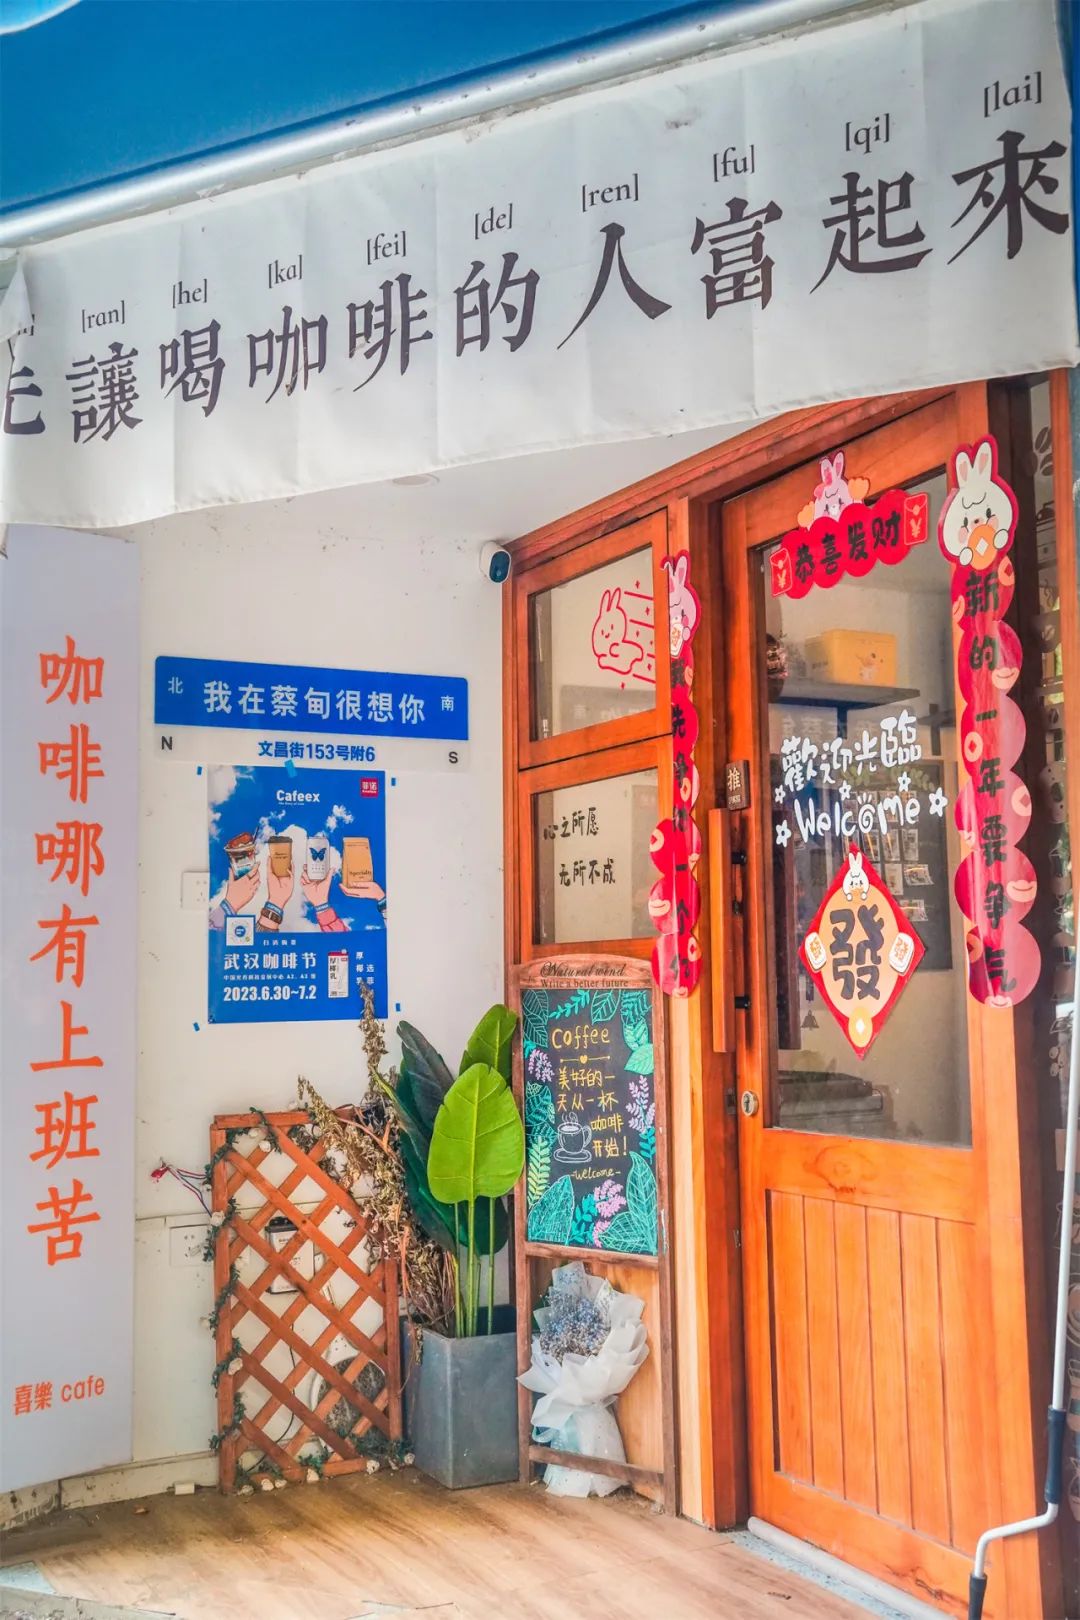 [ran] [he] [ka] [fei] [de] [ren] [fu] [qi] [lai]
先讓喝咖啡的人富起來
咖啡哪有上班苦
喜樂 cafe
北 我在蔡甸很想你 南
N 文昌街153号附6 S
Cafeex
菲诺
武汉咖啡节
2023.6.30~7.2
厚椰乳
心之所愿
无所不成
Natural wind
Write a better future
Coffee
美好的一
天从一杯
咖啡
开始!
-welcome-
恭喜发财
新的一年要争气
推
歡迎光臨
Welcome
發